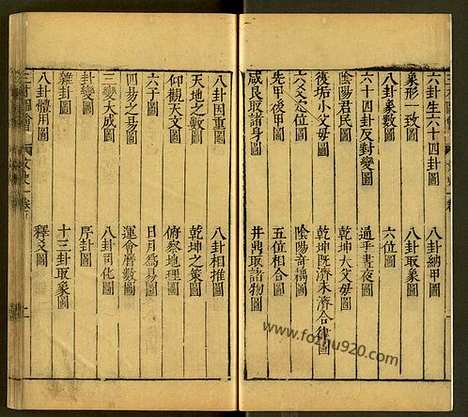 六卦生六十四卦圖 八卦納甲圖
象形一致圖 八卦取象圖
八卦象數圖 六位圖
六十四卦反對變圖 通乎晝夜圖
陰陽君民圖 乾坤大父母圖
復垢小父母圖 乾坤既濟未濟合律圖
六爻定位圖 陰陽奇耦圖
先甲後甲圖 五位相合圖
咸艮取諸身圖 井鼎取諸物圖
八卦因重圖 八卦相推圖
天地之數圖 乾坤之策圖
仰觀天文圖 俯察地理圖
六子圖 日月為易圖
四易之圖 運會曆數圖
三變大成圖 八卦司化圖
卦變圖 序卦圖
雜卦圖 十三卦取象圖
八卦體用圖 釋爻圖
三才圖會
www.fozhu920.com